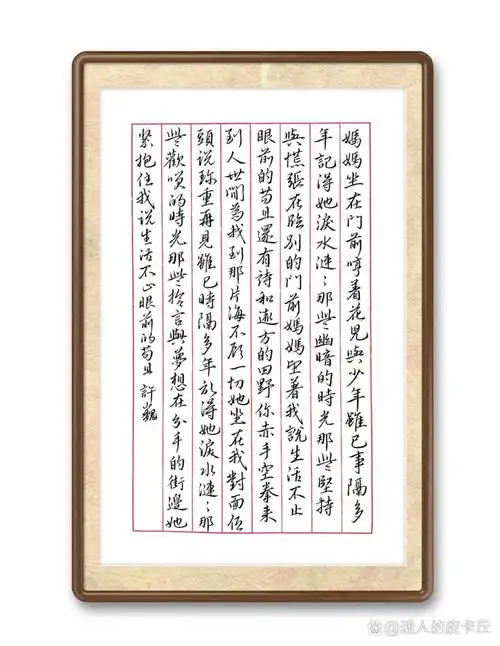 媽媽坐在門前哼着花兒與少年雖已事隔多
年記得她淚水漣:那些幽暗的時光那些堅持
與慌張在臨別的門前媽媽望著我說生活不止
眼前的苟且還有詩和遠方的田野你赤手空拳来
到人世間為找到那片海不顧一切她坐在我對面低
頭说珍重再見雖已時隔多年 記得她淚水漣:那
些歡笑的時光那些 言與夢想在分手的街邊她
緊抱住我说生活不止眼前的苟且 許巍
@迷人的皮卡丘